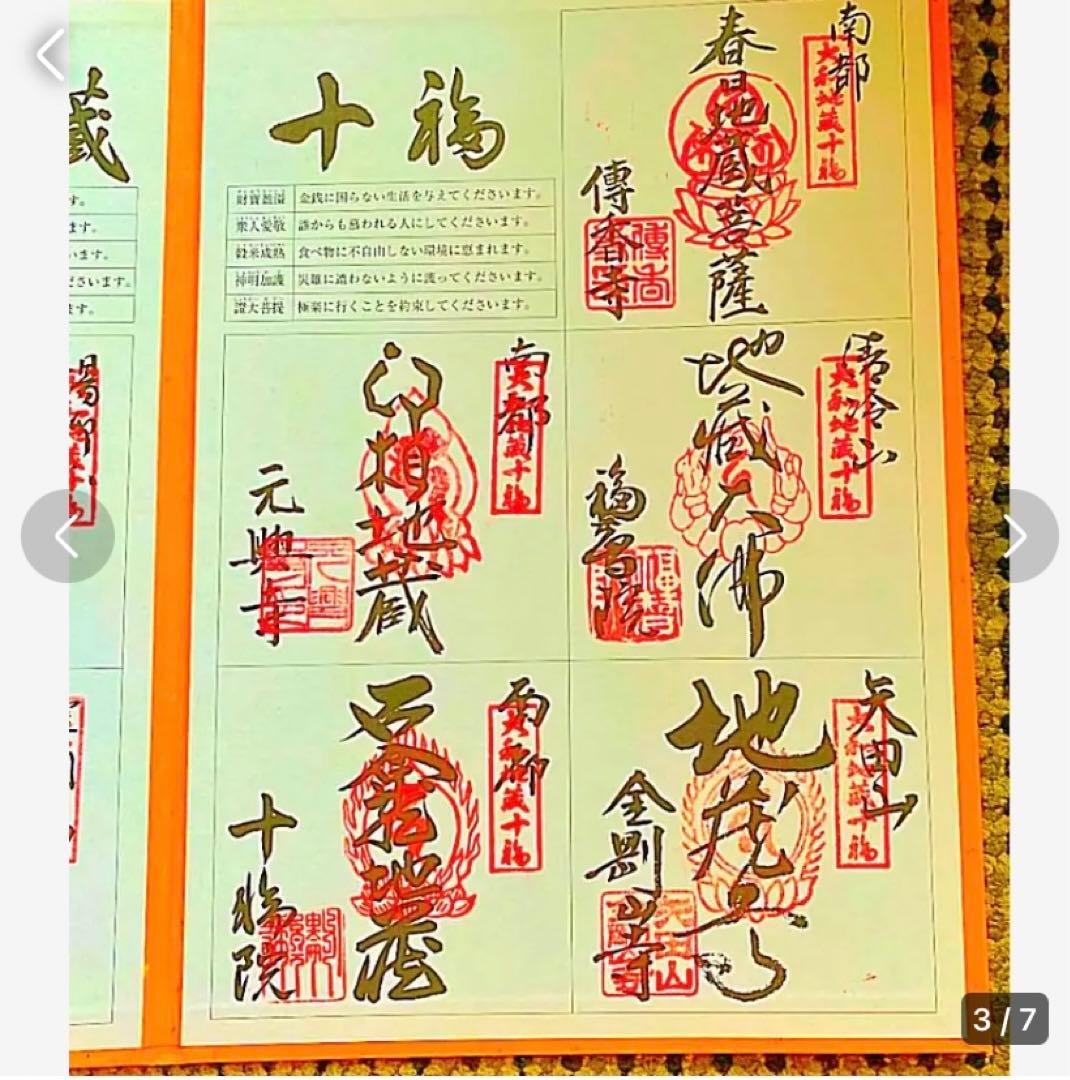 蔵
十福
財寶盈溢 金銭に困らない生活を与えてくださいます。
衆人愛敬 誰からも慕われる人にしてくださいます。
穀米成熟 食べ物に不自由しない環境に恵まれます。
神明加護 災難に遭わないように護ってくださいます。
證大菩提 極楽に行くことを約束してくださいます。
す。
ます。
います。
ださいます。
ます。
南都
大和地蔵十福
春日地蔵菩薩
傳香寺
清冷山
大和地蔵十福
地蔵大佛
福智院
南都
大和地蔵十福
印相地蔵
元興寺
矢田山
大和地蔵十福
地蔵尊
金剛山寺
南都
大和地蔵十福
石龕地蔵
十輪院
3 / 7